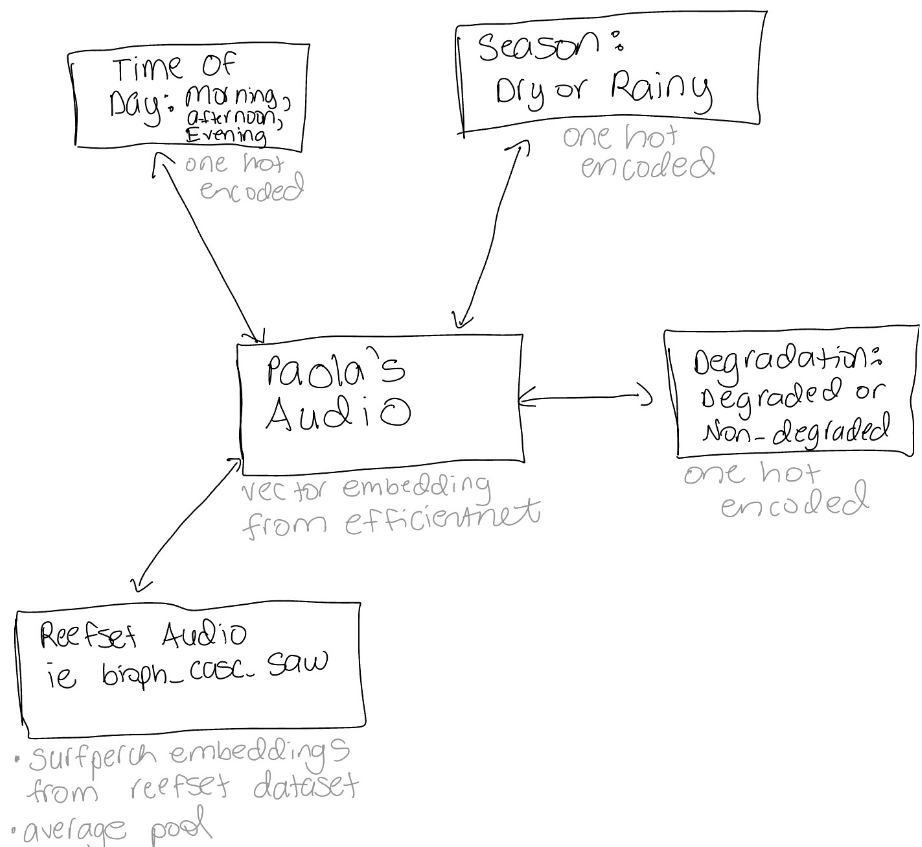 Time Of
Day: Morning,
afternoon,
Evening
one hot
encoded
Season:
Dry or Rainy
one hot
encoded
Paola's
Audio
vector embedding
from efficientnet
Degradation:
Degraded or
Non-degraded
one hot
encoded
Reefset Audio
ie bioph_casc_saw
• surfperch embeddings
from reefset dataset
• average pool